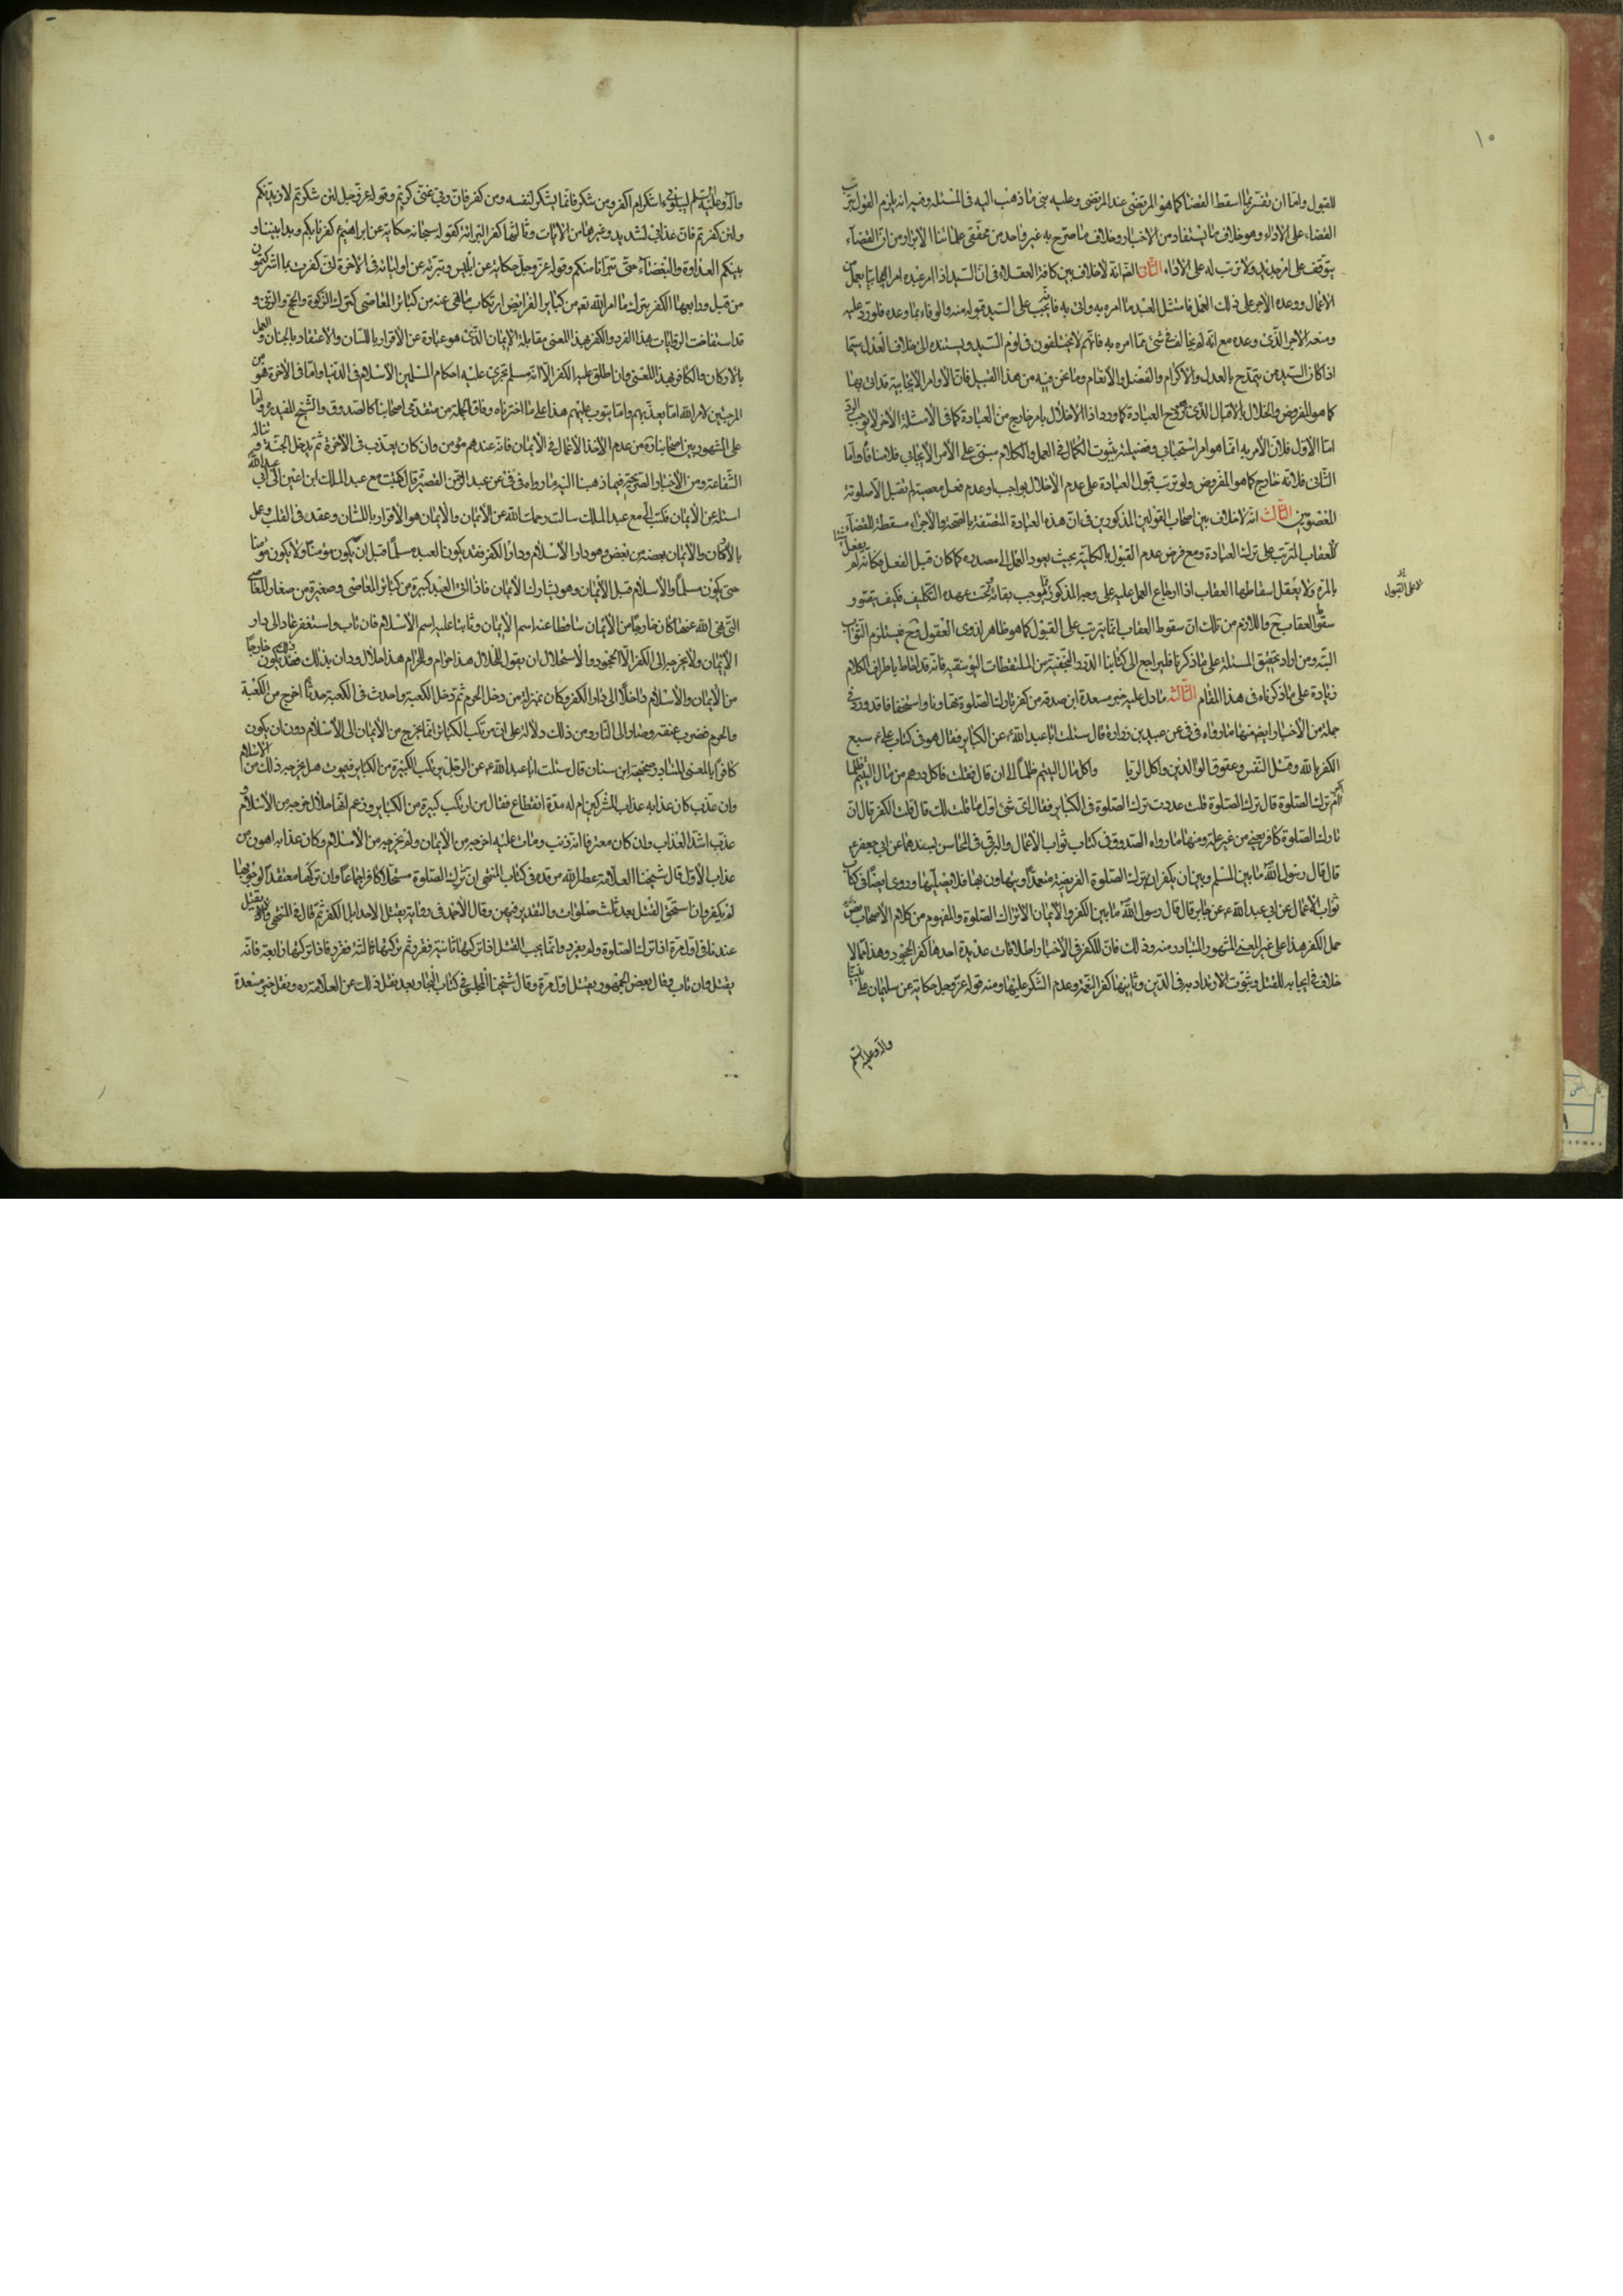 ١٠
للقبول واما ان نفسرها اسقط القضا كما هو المرتضى عند المرتضى وعليه بنى ما ذهب اليه فى المسئلة وفيه انه يلزم القول بترتب
القضاء على الاداء وهو خلاف ما يستفاد من الاخبار وخلاف ما صرح به غير واحد من محققى علمائنا الابرار من ان القضاء
يتوقف على امر جديد ولا ترتب له على الاداء الثانى انه لا خلاف بين كافة العقلاء فى ان السيد اذا امر عبده امرا ايجابيا بعمل من
الاعمال ووعده الاجر على ذلك العمل فامتثل العبد ما امره به واتى به فانه يجب على السيد قبوله منه والوفاء بما وعده فلو رد عليه
ومنعه الاجر الذى وعده مع انه لم يخالف فى شئ مما امره به فانهم لا يختلفون فى لوم السيد ويسنده الى خلاف العدل سيما
اذا كان السيد ممن يتمدح بالعدل والاكرام والفضل والانعام وما نحن فيه من هذا القبيل فان الاوامر الايجابية قد اتى بها
كما هو المفروض والاخلال بالاقبال الذى هو روح العبادة كما ورد اذ الاخلال بامر خارج من العبادة كما فى الامثلة الاخر لا يوجب الرد
اما الاول فلان الامر به انما هو امر استحبابى وفضيلته بثبوت الكمال فى العمل والكلام مبنى على الامر الايجابى فلا منافاة واما
الثانى فلانه خارج كما هو المفروض ولو ترتب قبول العبادة على عدم الاخلال بواجب او عدم فعل معصية لم تقبل الا صلوة
المعصومين الثالث انه لا خلاف بين اصحاب القولين المذكورين فى ان هذه العبادة المتصفة بالصحة والاجزاء مسقطة للقضاء
للعقاب المترتب على ترك العبادة ومع فرض عدم القبول بالكلية بحيث يعود العمل الى مصدره كما كان قبل الفعل فكانه لم يفعل شيئا
بالمرة ولا يعقل اسقاطها العقاب اذ ارجاع العمل عليه على وجه المذكور موجب بقائه تحت عهده التكليف فكيف يتصور
سقوط العقاب ح فاللازم من تلك ان سقوط العقاب انما يترتب على القبول كما هو ظاهر لذوى العقول وح فيستلزم الثواب
البتة ومن اراد تحقيق المسئلة على ما ذكرنا فليراجع الى كتابنا الدرر النجفية من الملتقطات اليوسفية فانه قد احاط باطراف الكلام
زيادة على ما ذكرناه فى هذا المقام الثالثة ما دل عليه خبر مسعدة ابن صدقة من كفر تارك الصلوة تهاونا واستخفافا قد ورد فى
جملة من الاخبار ايضا منها ما رواه فى فى عن عبيد بن زرارة قال سئلت ابا عبد الله ع عن الكباير فقال هو فى كتاب على ع سبع
الكفر بالله وقتل النفس وعقوق الوالدين واكل الربا واكل مال اليتيم ظلما الى ان قال فقلت فاكل درهم من مال اليتيم ظلما
اكبر ام ترك الصلوة قال ترك الصلوة قلت عددت ترك الصلوة فى الكباير فقال اى شئ اول ما قلت لك قال قلت الكفر قال ان
تارك الصلوة كافر يعنى من غير علة ومنها ما رواه الصدوق فى كتاب ثواب الاعمال والبرقى فى المحاسن بسندهما عن ابى جعفر ع
قال قال رسول الله ما بين المسلم وبين ان يكفر ان يترك الصلوة الفريضة متعمدا او يتهاون بها فلا يصليها وروى ايضا فى كتاب
ثواب الاعمال عن ابى عبد الله ع عن جابر قال قال رسول الله ما بين الكفر والايمان الا ترك الصلوة والمفهوم من كلام الاصحاب رض
حمل الكفر هذا على غير المعنى المشهور المتبادر منه وذلك فان للكفر فى الاخبار اطلاقات عديدة احدها كفر الجحود وهذا مما لا
خلاف فى ايجابه للقتل وثبوت الارتداد به فى الدين وثانيها كفر النعمة وعدم الشكر عليها ومنه قوله عز وجل حكاية عن سليمان على نبينا
واله وعليه السلم
لا على القبول
واله وعليه السلم ليبلونى ءاشكر ام اكفر ومن شكر فانما يشكر لنفسه ومن كفر فان ربى غنى كريم وقوله عز وجل لئن شكرتم لازيدنكم
ولئن كفرتم فان عذابى لشديد وغيرها من الايات وثالثها كفر البرائة كقوله سبحانه حكاية عن ابراهيم ع كفرنا بكم وبدا بيننا و
بينكم العداوة والبغضاء حتى تبرانا منكم وقوله عز وجل حكاية عن ابليس وتبريه عن اوليائه فى الاخرة انى كفرت بما اشركتمون
من قبل ورابعها الكفر بترك ما امر الله تعم من كباير الفرايض وارتكاب ما نهى عنه من كبائر المعاصى كترك الزكوة والحج والزنى و
قد استفاضت الروايات بهذا الفرد والكفر بهذا المعنى مقابلة الايمان الذى هو عبارة عن الاقرار باللسان والاعتقاد بالجنان والعمل
بالاركان والكافر بهذا المعنى وان اطلق عليه الكفر الا انه مسلم تجرى عليه احكام المسلمين الاسلام فى الدنيا واما فى الاخرة فهو من
المرجئين لامر الله اما يعذبهم واما يتوب عليهم هذا على ما اخترناه وفاقا لجملة من متقدمى اصحابنا كالصدوق والشيخ المفيد ره واما
على المشهور بين اصحابنا ره من عدم الاخذ الاعمال فى الايمان فانه عندهم مؤمن وان كان يعذب فى الاخرة ثم يدخل الجنة وتناله
الشفاعة ومن الاخبار الصريحة فيما ذهبنا اليه ما رواه فى فى عن عبد الرحيم القصير قال كتبت مع عبد الملك ابن اعين الى ابى عبد الله
اسئله عن الايمان فكتب الى مع عبد الملك سالت رحمك الله عن الايمان والايمان هو الاقرار باللسان وعقد فى القلب وعمل
بالاركان والايمان بعضه من بعض وهو دار والاسلام دار والكفر فقد يكون العبد مسلما قبل ان يكون مؤمنا ولا يكون مؤمنا
حتى يكون مسلما والاسلام قبل الايمان وهو يشارك الايمان فاذا اتى العبد كبيرة من كبائر المعاصى وصغيرة من صغار المعاصى
التى نهى الله عنها كان خارجا من الايمان ساقطا عنه اسم الايمان وثابتا عليه اسم الاسلام فان تاب واستغفر عاد الى دار
الايمان ولا يخرجه الى الكفر الا الجحود والاستحلال ان يقول للحلال هذا حرام وللحرام هذا حلال ودان بذلك فعندها يكون خارجا
من الايمان والاسلام داخلا الى دار الكفر وكان بمنزلة من دخل الحرم ثم دخل الكعبة واحدث فى الكعبة حدثا اخرج من الكعبة
والحرم فضرب عنقه وصار الى النار ومن ذلك دلالة على ان مرتكب الكبائر انما يخرج من الايمان الى الاسلام دون ان يكون
كافرا بالمعنى المتبادر وصحيحة ابن سنان قال سئلت ابا عبد الله ع عن الرجل يرتكب الكبيرة من الكباير فيموت هل يخرجه ذلك من الاسلام
وان عذب كان عذابه عذاب المشركين ام له مدة انقطاع فقال من ارتكب كبيرة من الكباير وزعم انها حلال خرجه من الاسلام
عذب اشد العذاب وان كان معترفا انه ذنب ومات عليه اخرجه من الايمان ولم يخرجه من الاسلام وكان عذابه اهون من
عذاب الاول قال شيخنا العلامة عطر الله مرقده فى كتاب المنتهى ان ترك الصلوة مستحلا كافر اجماعا وان تركها معتقدا لوجوبها
لم يكفر وان استحق القتل بعد ثلث صلوات والتعزير فيهن وقال الاحمد فى رواية يقتل لا حدا بل لكفره ثم قال فى المنتهى ولا يقتل
عندنا فى اول مرة اذا ترك الصلوة ولم يعزر وانما يجب القتل اذا تركها ثانية فعزر ثم تركها ثالثة فعزر فاذا تركها رابعة فانه
يقتل وان تاب وقال بعض الجمهور يقتل اول مرة وقال شيخنا المجلسى فى كتاب البحار بعد نقل ذلك عن العلامة ره ونقل خبر مسعدة